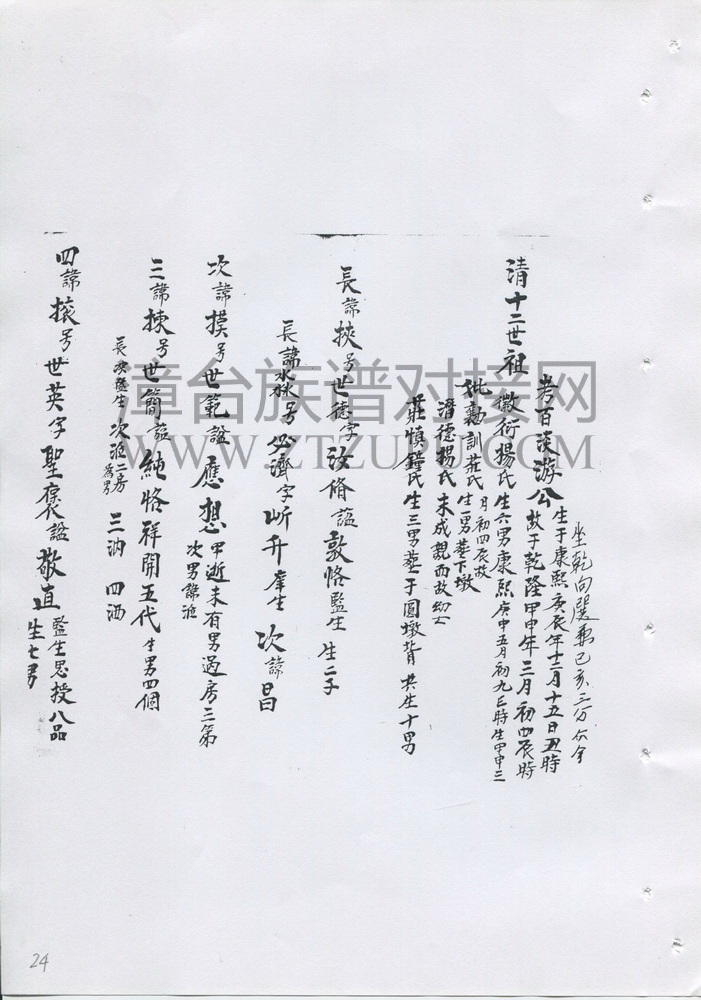 坐乾向巽兼巳亥三分分金
清十二世祖
考百淡游公
生于康熙庚辰年十二月十五日丑時
故于乾隆甲申年三月初四辰時
徽衍楊氏生六男康熙庚申五月初九巳時生甲申三
月初四辰故
妣勤訓莊氏生一男葬下墩
潛德楊氏未成親而故幼士
莊慎鐘氏生三男葬于圓墩背共生十男
長諱挾号世德字汝脩諡敦恪監生 生二子
長諱淼号必濟字㟁升庠生 次諱昌
次諱摸号世範諡應想早逝未有男過房三第
次男諱派
三諱揀号世簡諡純恪祥開五代生男四個
長 監生 次派二房為男 三汭 四洒
四諱㨿号世英字聖褒諡敬直監生恩授八品
生七男
漳台族谱对接网
WWW.ZTZUPU.COM
24